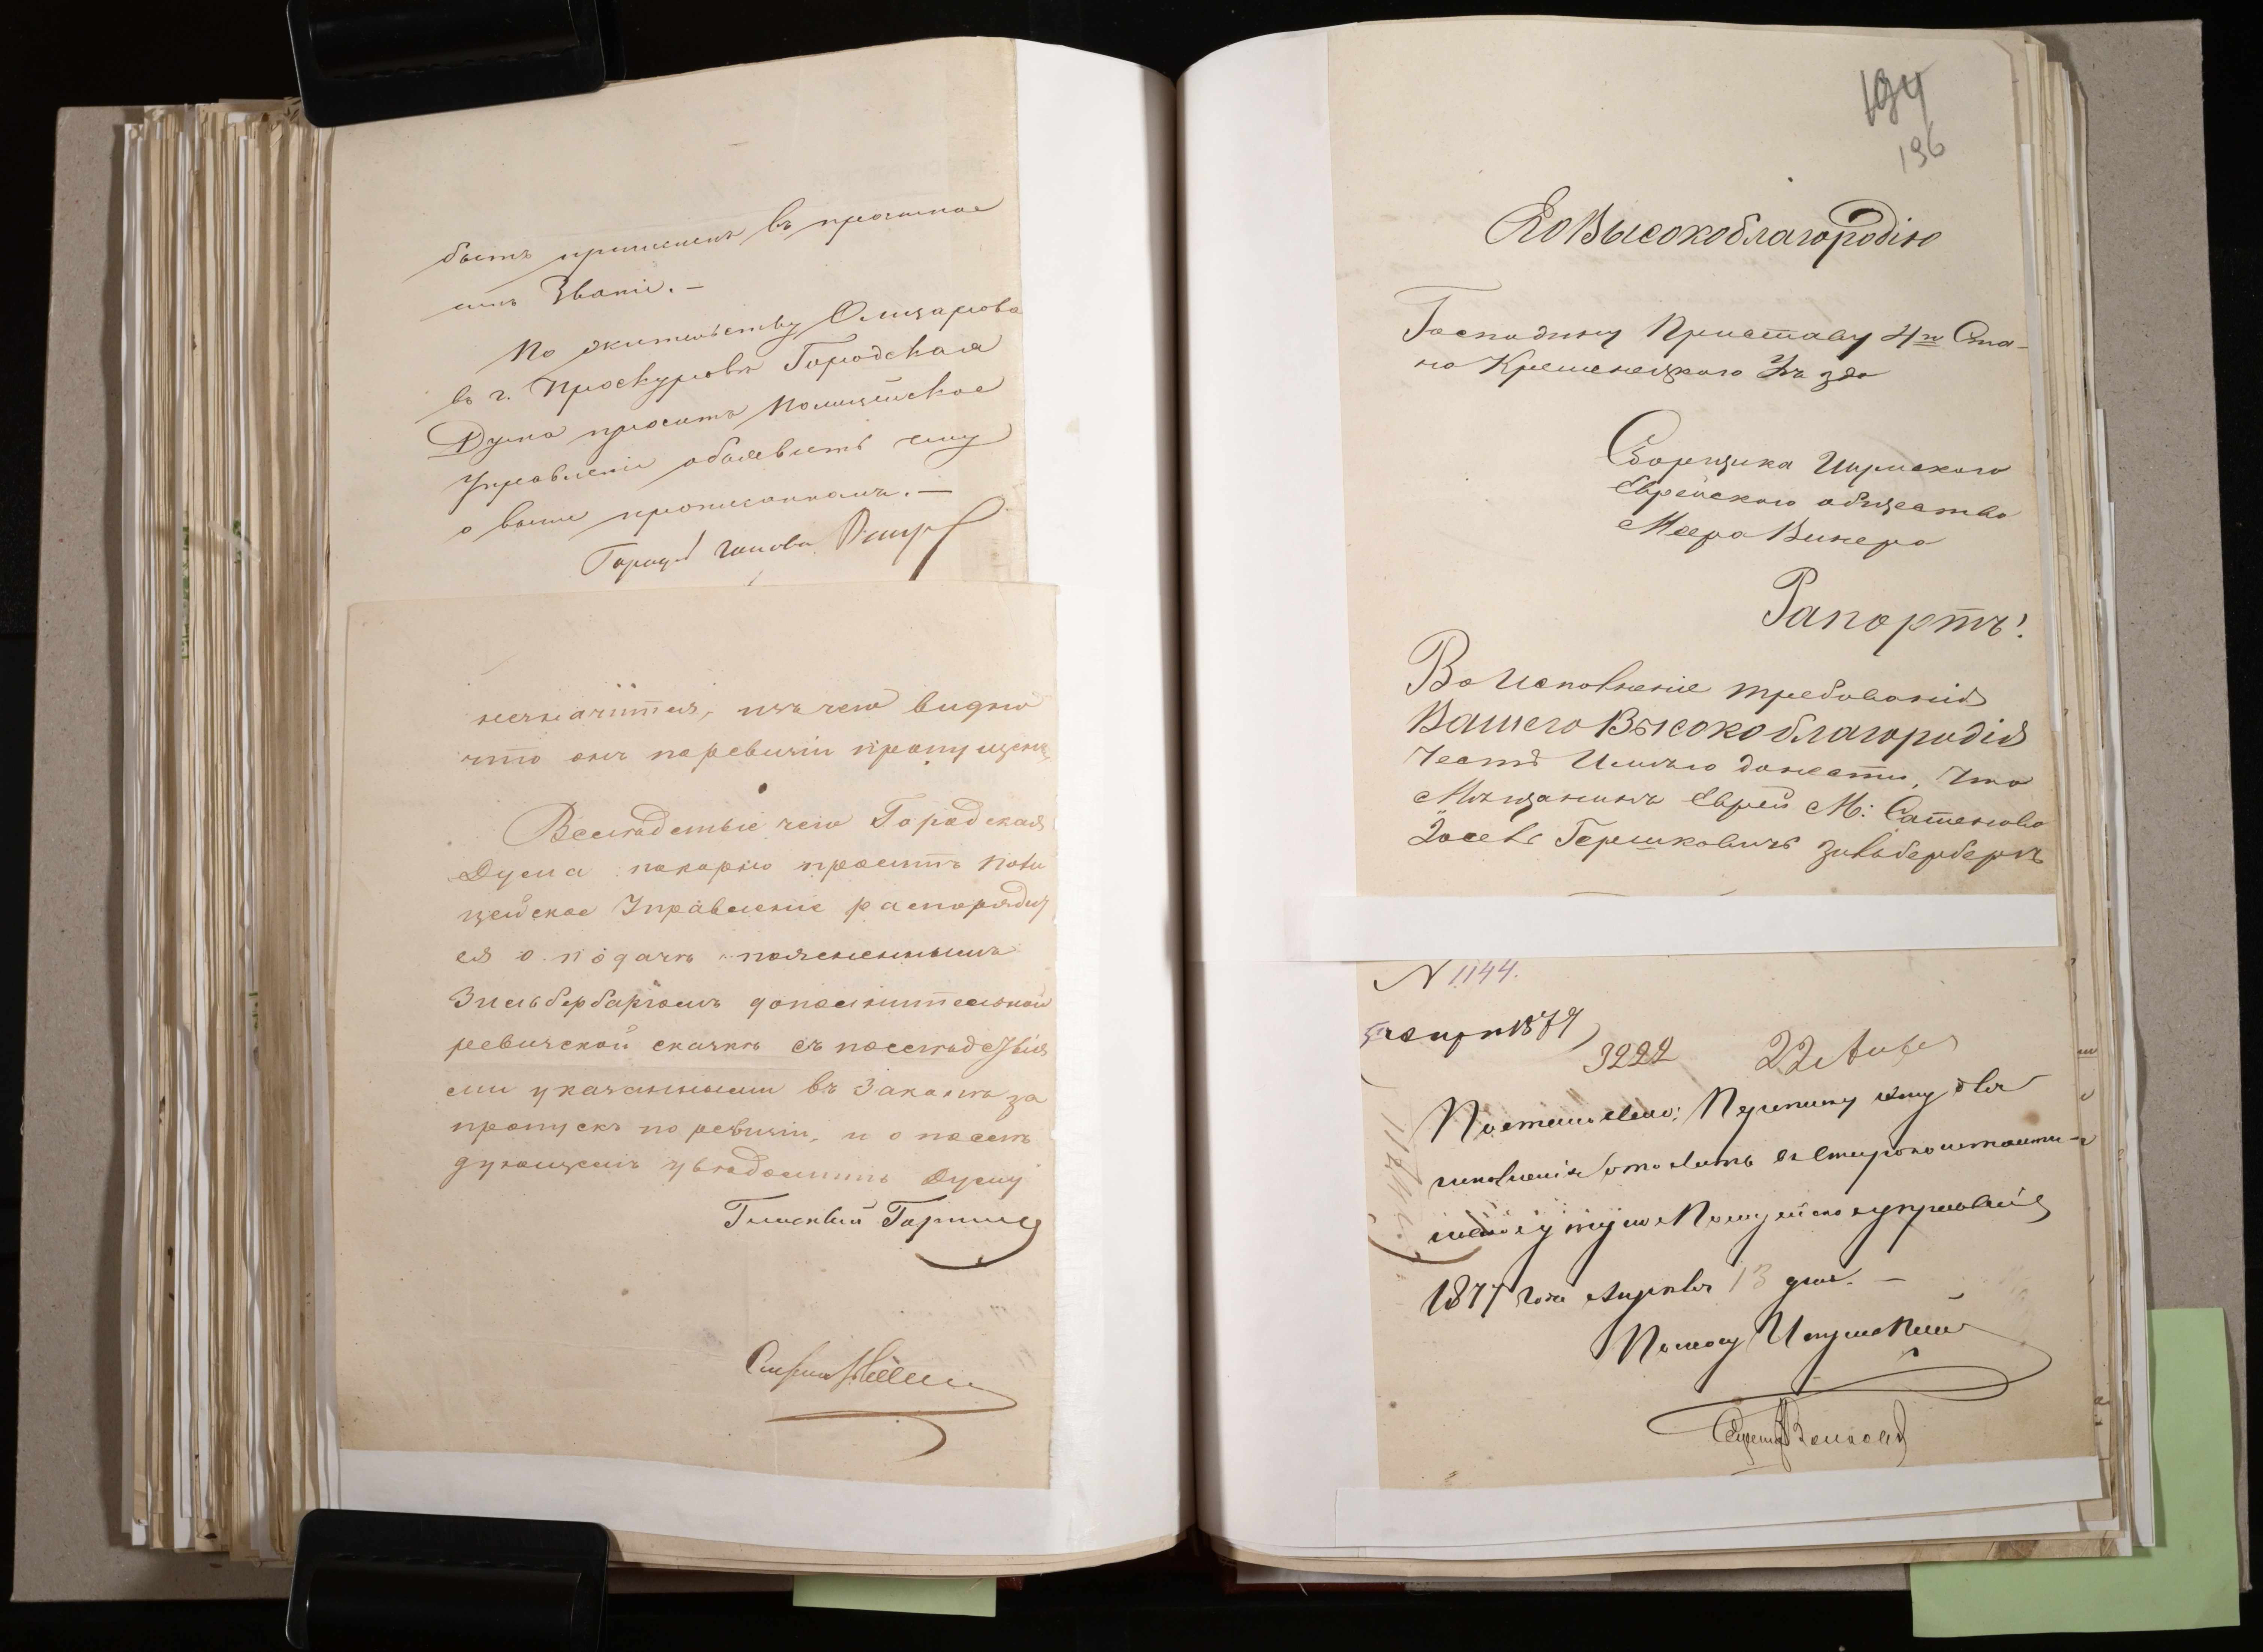 быть приписанъ въ прежнее
Званіе. —
По жительству Олицарова
въ г. Проскуровѣ Городская
Дума проситъ Полицейское
Управленіе обьявить ему
о выше прописанномъ. —
Город голова
незначится, изъ чего видно
что онъ по ревизіи пропущенъ
Вслѣдствіе чего Городская
Дума покорно проситъ Поли
цейское Управленіе распоряди
ся о подачѣ поясненнымъ
Зильбербаргомъ дополнительной
ревизской сказки съ послѣдствія
ми указанными въ Законѣ за
пропускъ по ревизіи, и о послѣ
дующемъ увѣдомить Думу
Гласный
194
196
Его Высокоблагородію
Господину Приставу 4го Ста-
на Кременецкого Уѣзда
Сборщика
Еврейского общества
Меера Винера
Рапортъ!
Во Исполненіе требованія
Вашего Высокоблагородія
Честь Имѣю донести, Что
Мѣщанинъ Еврей М: Сатанова
Іосев Гершковичъ Зильберберъ
N 1144.
1877
3222 22 Апрѣ
Постановлено: Переписку эту для
исполненія отослать въ Староконстанти-
Полицейское управленіе
1877 года Апрѣля 13 дня. —